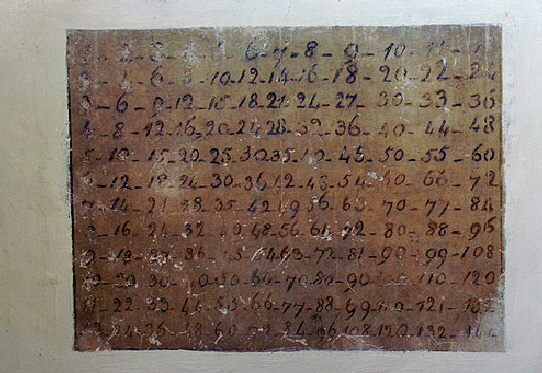 1 - 2 - 3 - 4 - 5 - 6 - 7 - 8 - 9 - 10 - 11 - 12
2 - 4 - 6 - 8 - 10 - 12 - 14 - 16 - 18 - 20 - 22 - 24
3 - 6 - 9 - 12 - 15 - 18 - 21 - 24 - 27 - 30 - 33 - 36
4 - 8 - 12 - 16 - 20 - 24 - 28 - 32 - 36 - 40 - 44 - 48
5 - 10 - 15 - 20 - 25 - 30 - 35 - 40 - 45 - 50 - 55 - 60
6 - 12 - 18 - 24 - 30 - 36 - 42 - 48 - 54 - 60 - 66 - 72
7 - 14 - 21 - 28 - 35 - 42 - 49 - 56 - 63 - 70 - 77 - 84
8 - 16 - 24 - 32 - 40 - 48 - 56 - 64 - 72 - 80 - 88 - 96
9 - 18 - 27 - 36 - 45 - 54 - 63 - 72 - 81 - 90 - 99 - 108
10 - 20 - 30 - 40 - 50 - 60 - 70 - 80 - 90 - 100 - 110 - 120
11 - 22 - 33 - 44 - 55 - 66 - 77 - 88 - 99 - 110 - 121 - 132
12 - 24 - 36 - 48 - 60 - 72 - 84 - 96 - 108 - 120 - 132 - 144